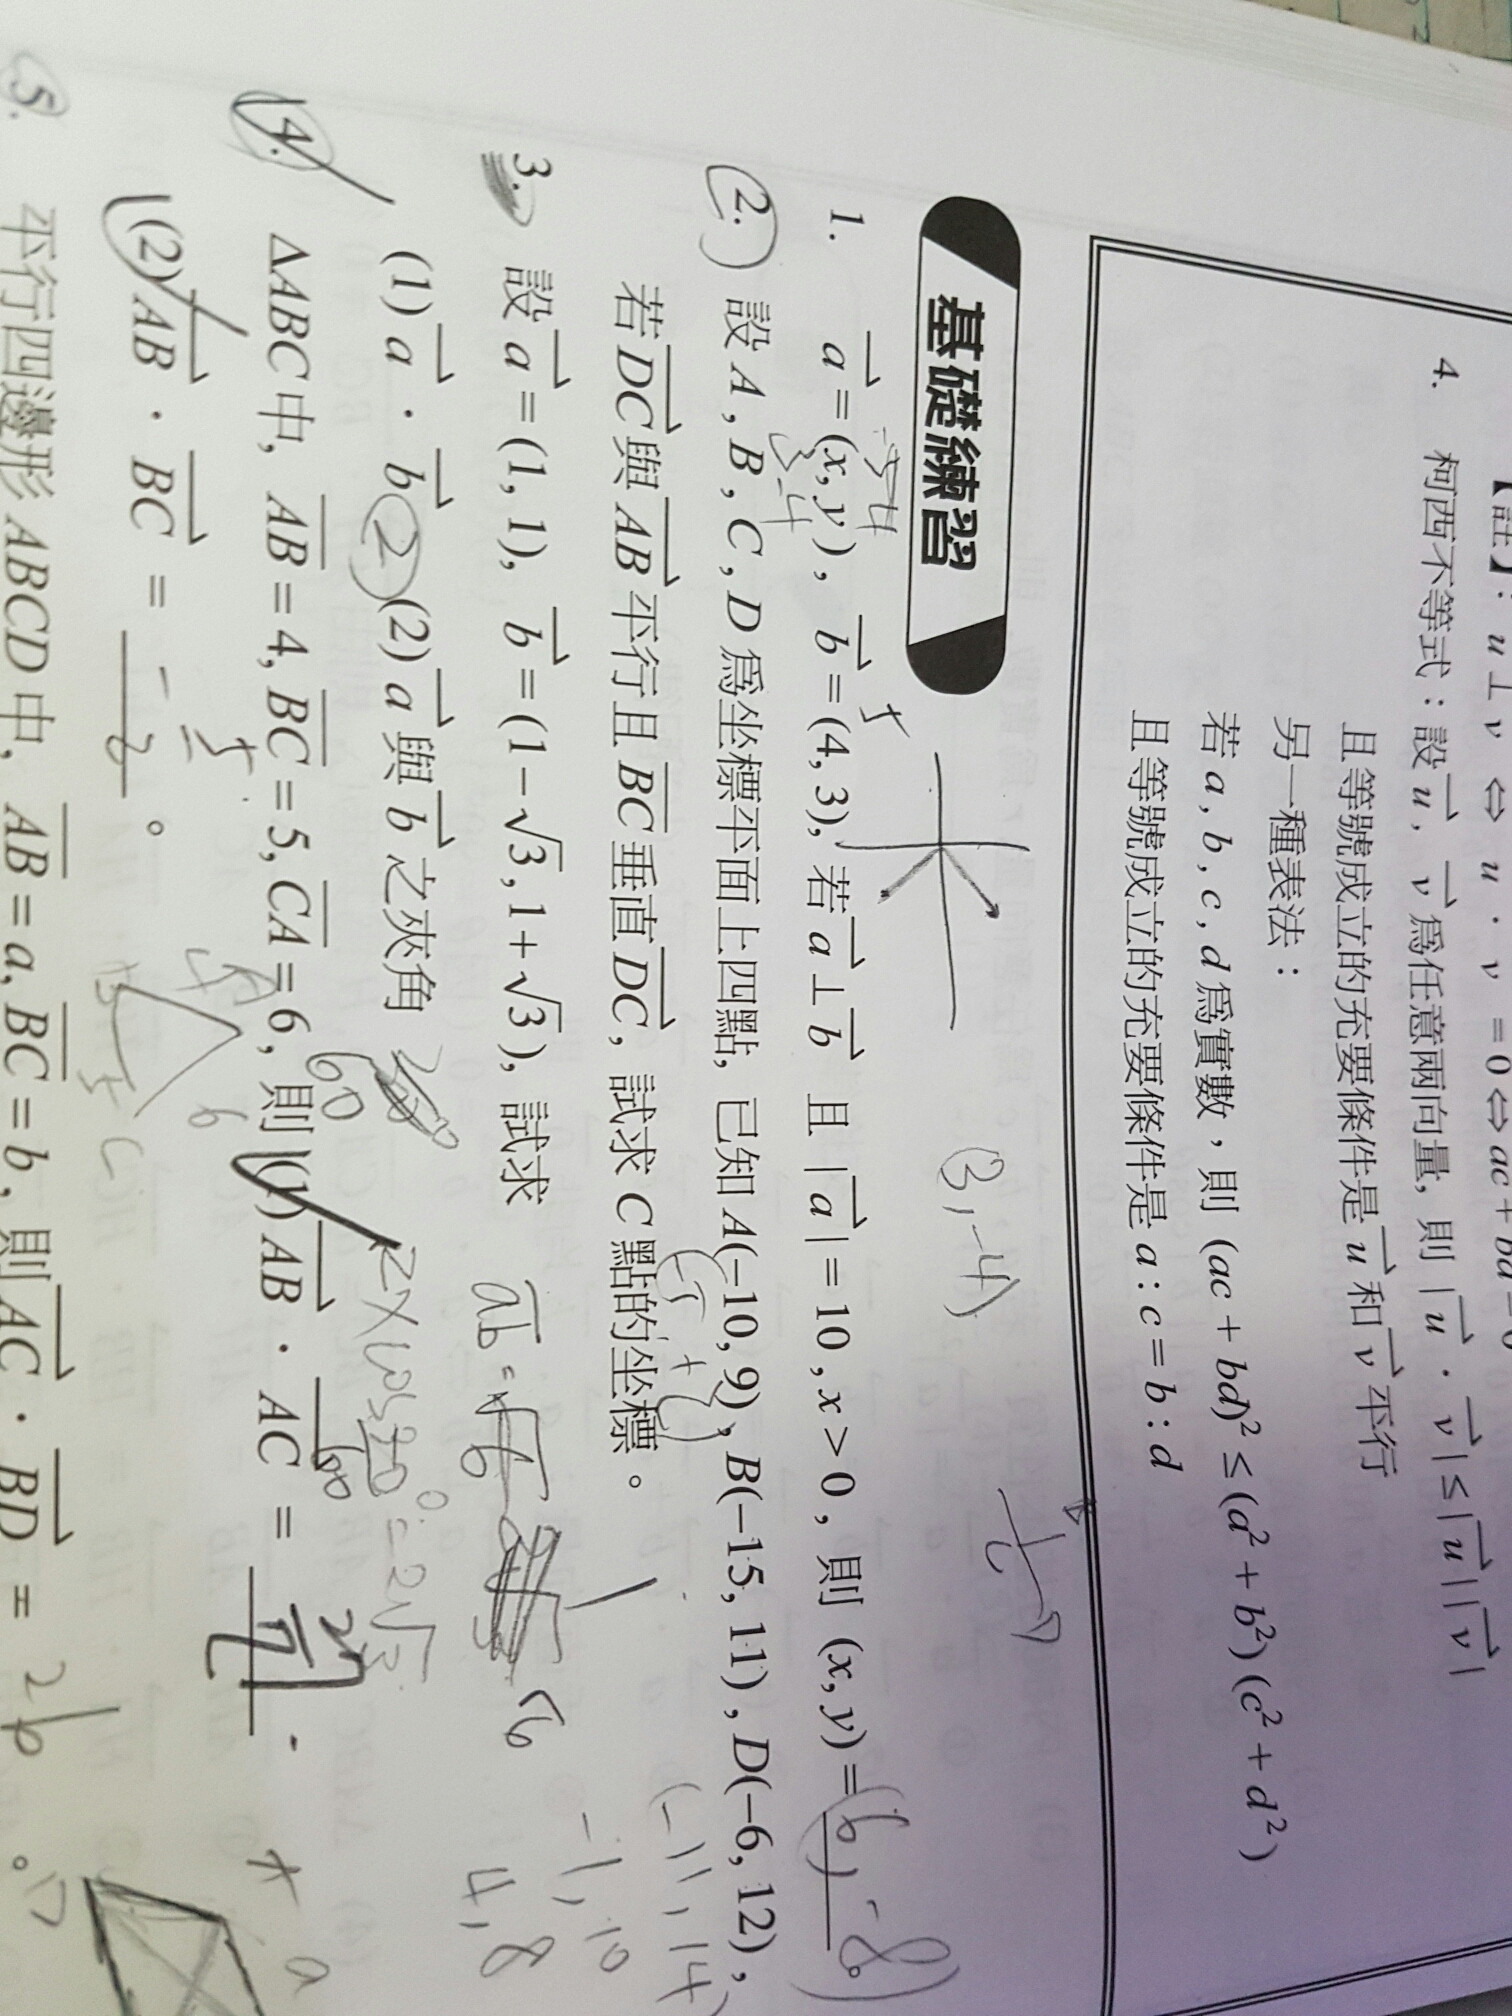 【註】: u ⊥ v ⇔ u · v = 0 ⇔ ac + bd = 0
4. 柯西不等式：設 u⃗, v⃗ 為任意兩向量, 則 | u⃗ · v⃗ | ≤ | u⃗ | | v⃗ |
且等號成立的充要條件是 u⃗ 和 v⃗ 平行
另一種表法：
若 a, b, c, d 為實數，則 (ac + bd)² ≤ (a² + b²) (c² + d²)
且等號成立的充要條件是 a : c = b : d
基礎練習
(3, -4)
1. a⃗ = (x, y), b⃗ = (4, 3), 若 a⃗ ⊥ b⃗ 且 | a⃗ | = 10, x > 0, 則 (x, y) = (6, -8)。
3 -4
2. 設 A, B, C, D 為坐標平面上四點, 已知 A(−10, 9), B(−15, 11), D(−6, 12),
若 DC⃗ 與 AB⃗ 平行且 BC⃗ 垂直 DC⃗, 試求 C 點的坐標。
(-11, 14)
-1, 10
4, 8
3. 設 a⃗ = (1, 1), b⃗ = (1 − √3, 1 + √3), 試求
(1) a⃗ · b⃗ 2 (2) a⃗ 與 b⃗ 之夾角 60
4. ΔABC 中, AB = 4, BC = 5, CA = 6, 則 (1) AB⃗ · AC⃗ =
(2) AB⃗ · BC⃗ = 。
5. 平行四邊形 ABCD 中, AB = a, BC = b, 則 AC⃗ · BD⃗ = 。